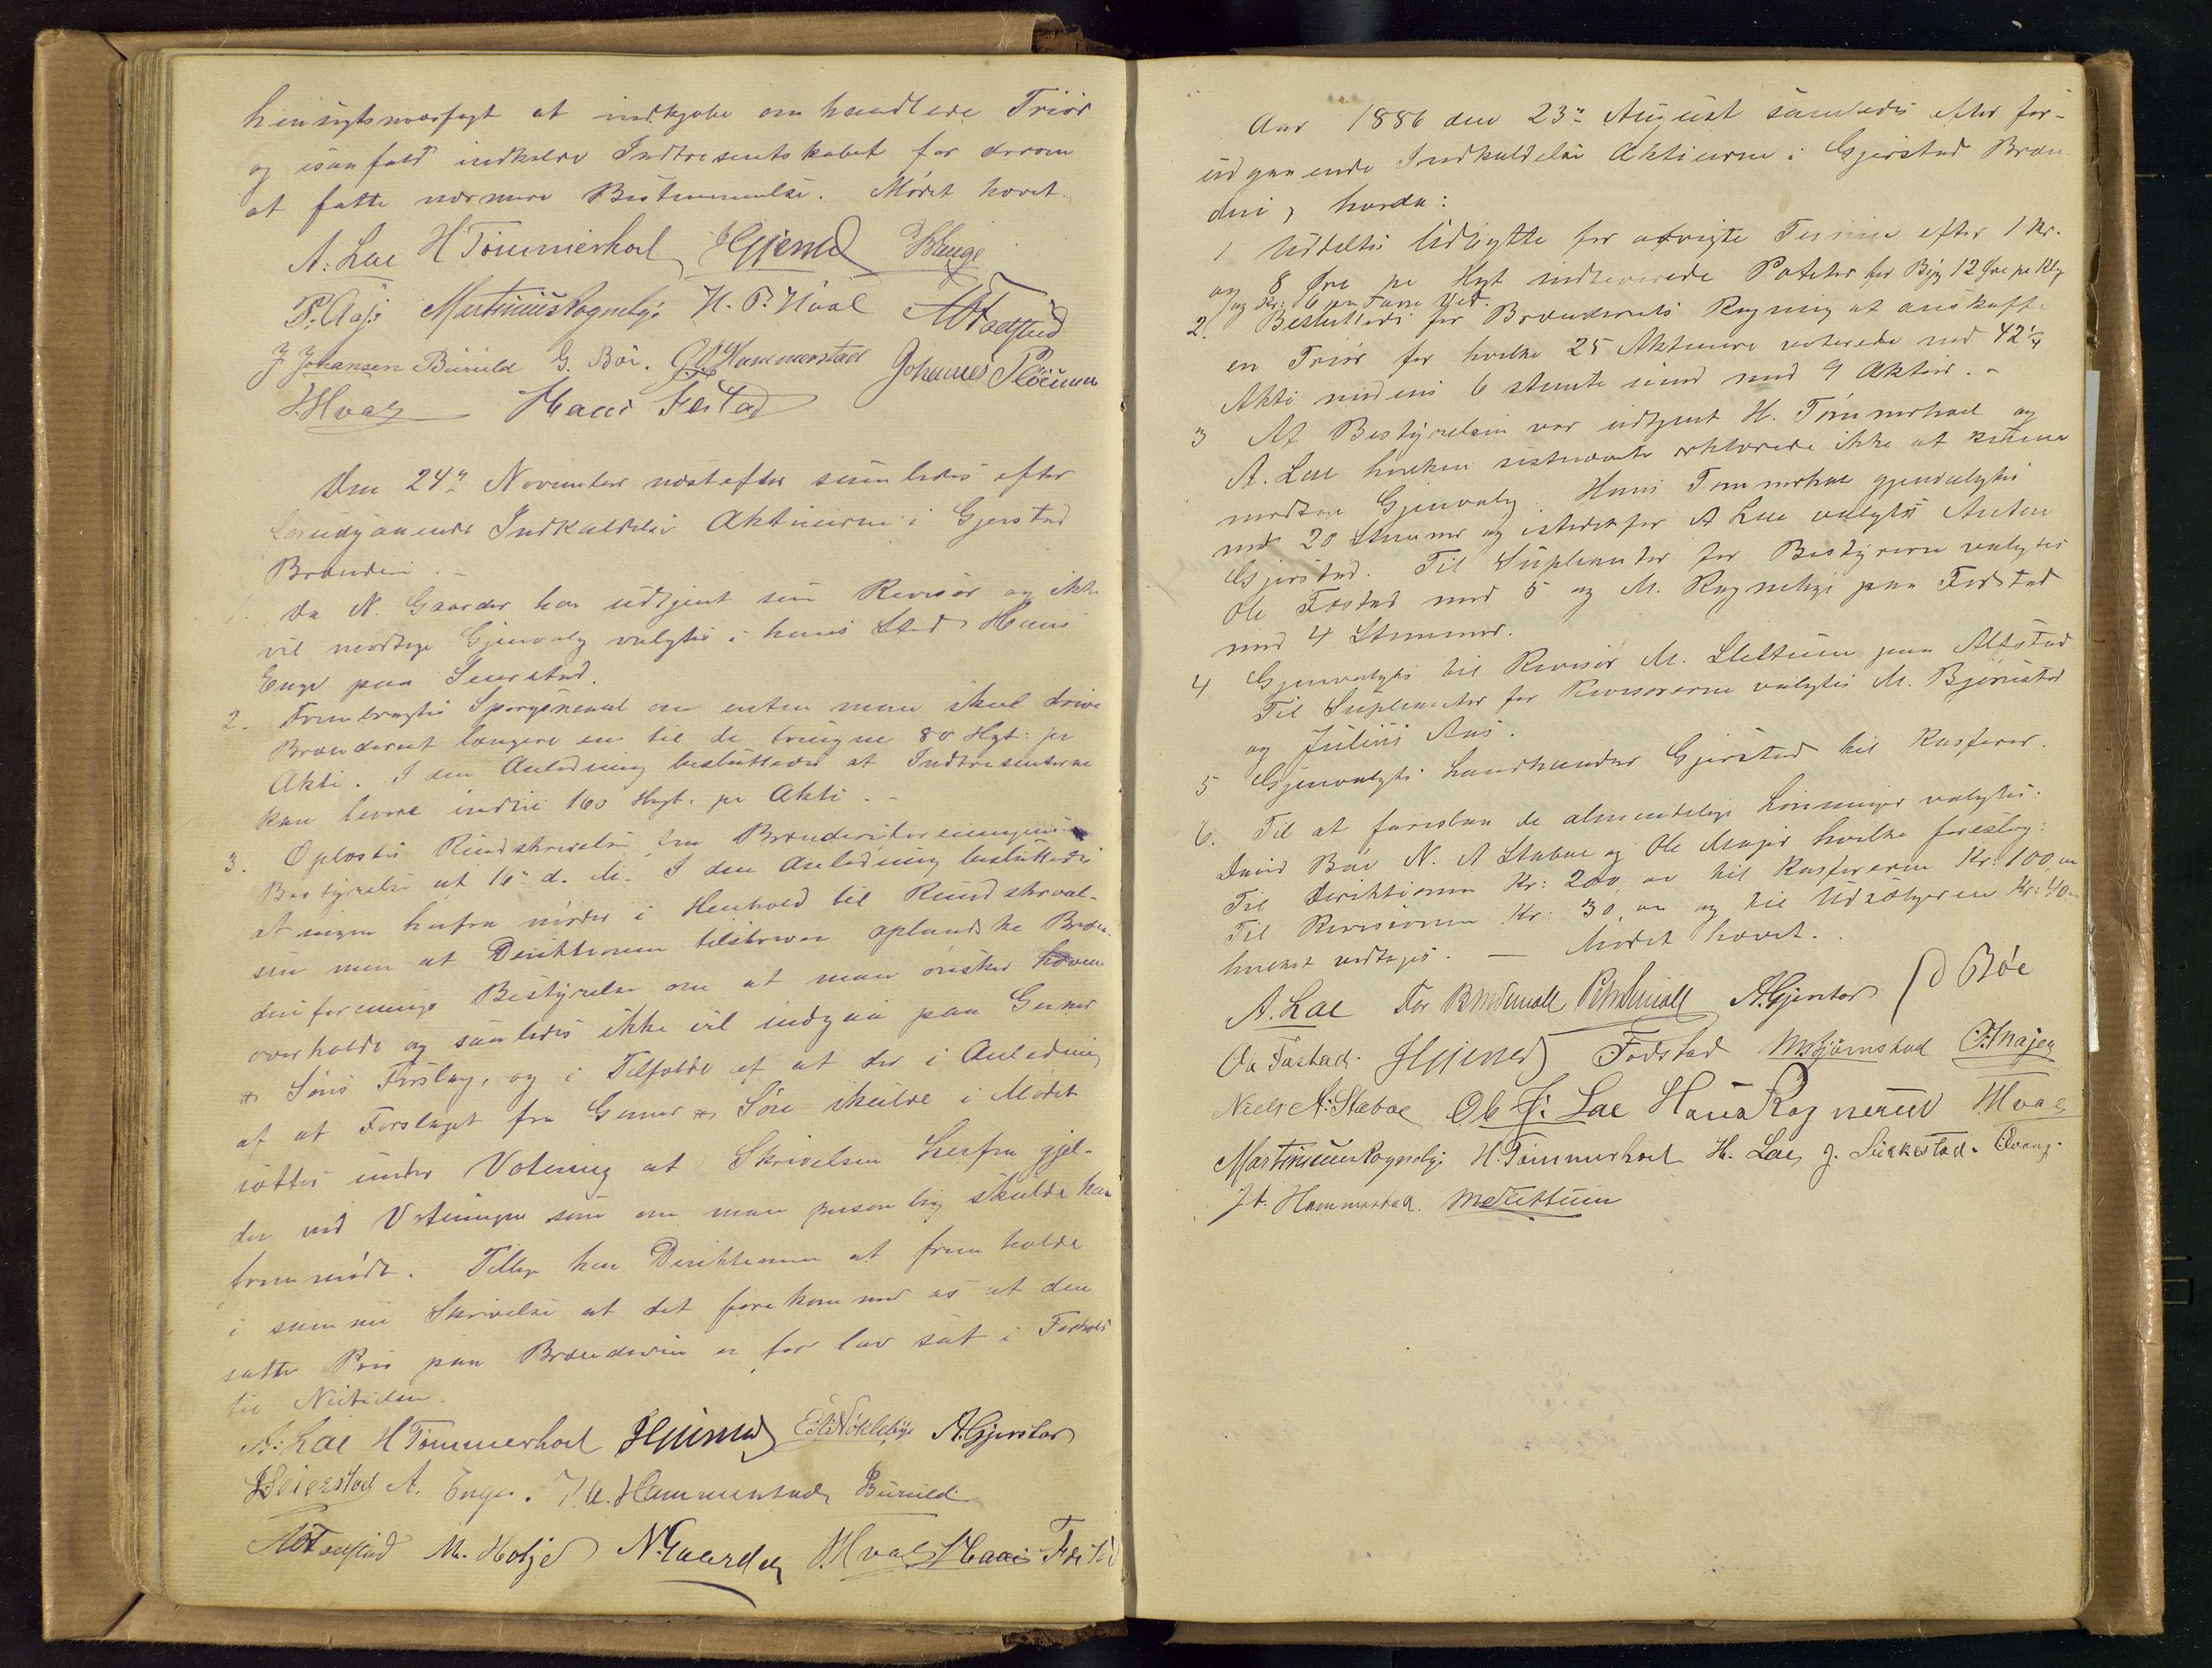 hensigtsmæsigt at indkjøbe omhandlede Triør
og isaafald indkalde Indtresentskabet for derom
at fatte nærmere Bestemmelse. Mødet hævet.
A. Lae H Tømmerhoel HGjerud
P. Aas Martinius Rognelye H. P. Hval
J Johansen Buruld G. Böe. Hammerstad Johannes
Hval Hans Festad
Den 24de November næstefter samledes efter
forudgaaende Indkaldelse Aktieerne i Gjerstad
Brænderi. –
1. Da N. Gaarder har udtjent som Revisor og ikke
vil modtage Gjenvalg valgtes i hans Sted Hans
Enge paa Seierstad.
2. Frembragtes Spørgsmaal om enten man skal drive
Brænderiet længere en til de tvungne 80 Hgt: pr
Akti. I den Anledning besluttedes at Indtresenterne
kan levere indtil 160 Hgt: pr Akti. –
3. Oplæstes Rundskrivelse fra Brænderiforeningens
Bestyrelse af 16de d. M. I den Anledning besluttedes
at ingen herfra møder i Henhold til Rundskrivel-
sen men at Deriktionen tilskriver oplandske Bræn-
deriforenings Bestyrelse om at man ønsker
overholdt og saaledes ikke vil indgaa paa Gumer
& Søns Forslag, og i Tilfælde af at der i Anledning
af at Forslaget fra Gumer & Søn skulde i Mødet
sættes under Votering at Skrivelsen herfra gjel-
der ved Voteringen som om man personlig skulde have
fremmødt. Tillige har Deriktionen at fremholde
i samme Skrivelse at det forekommer os at den
satte Pris paa Brændevin er for lav sat i Forhold
til Nutiden.
A. Lae H Tømmerhoel HGjerud Nøkleby A. Gjerstad
Seierstad A. Enger. J. A. Hammerstad Buruld
M. Holje N. Gaarder Hval Hans Festad
Aar 1886 den 23de August samledes efter for-
udgaaende Indkaldelse Aktieerne i Gjerstad Bræn
deri, hvorda:
1 Uddeltes Udbytte for afvigte Termin efter 1 Kr.
og 8 Øre pr Hgt indleverede Poteter for Byg 12 Øre pr Klg
og Kr: 6 pr Favn Ved.
2. Besluttedes for Brænderiets Regning at anskaffe
en Triør for hvilke 25 Aktieere voterede med 42 1/4
Akti medens 6 stemte imod med 9 Aktier. –
3 Af Bestyrelsen var udtjent H. Tømmerhoel og
A. Lae hvilken sistnævnte erklærede ikke at kunne
modtage Gjenvalg. Hans Tømmerhoel gjenvalgtes
med 20 Stemmer og istedetfor A Lae valgtes Anton
Gjerstad. Til Suplianter for Bestyrerne valgtes
Ole Fostad med 5 og M. Rognelye paa Fodstad
med 4 Stemmer.
4 Gjenvalgtes til Revisor M. Slettum paa Alfstad
Til Suplianter for Revisorerne valgtes M. Bjørnstad
og Julius Aas.
5 Gjenvalgtes Landhandler Gjerstad til Kasserer.
6. Til at foreslaa de almindelige Lønninger valgtes:
David Böe N. A Stabae og Ole Majer hvilke foreslog:
Til Deriktionen Kr: 200, til Kassereren Kr: 100,
Til Revisionen Kr: 30, og til Udsælgeren Kr: 40
hvilket vedtages. — Mødet hævet.
A. Lae A. Gjerstad D Böe
Ole Fostad. HGjerud Fodstad M. Bjørnstad O. Majer
Niels A. Stabae Ole J. Lae Hans Rognerud Hval
Martinius Rognelye H. Tømmerhoel H. Lae J. Sukkestad.
J. A. Hammerstad. M. Slettum